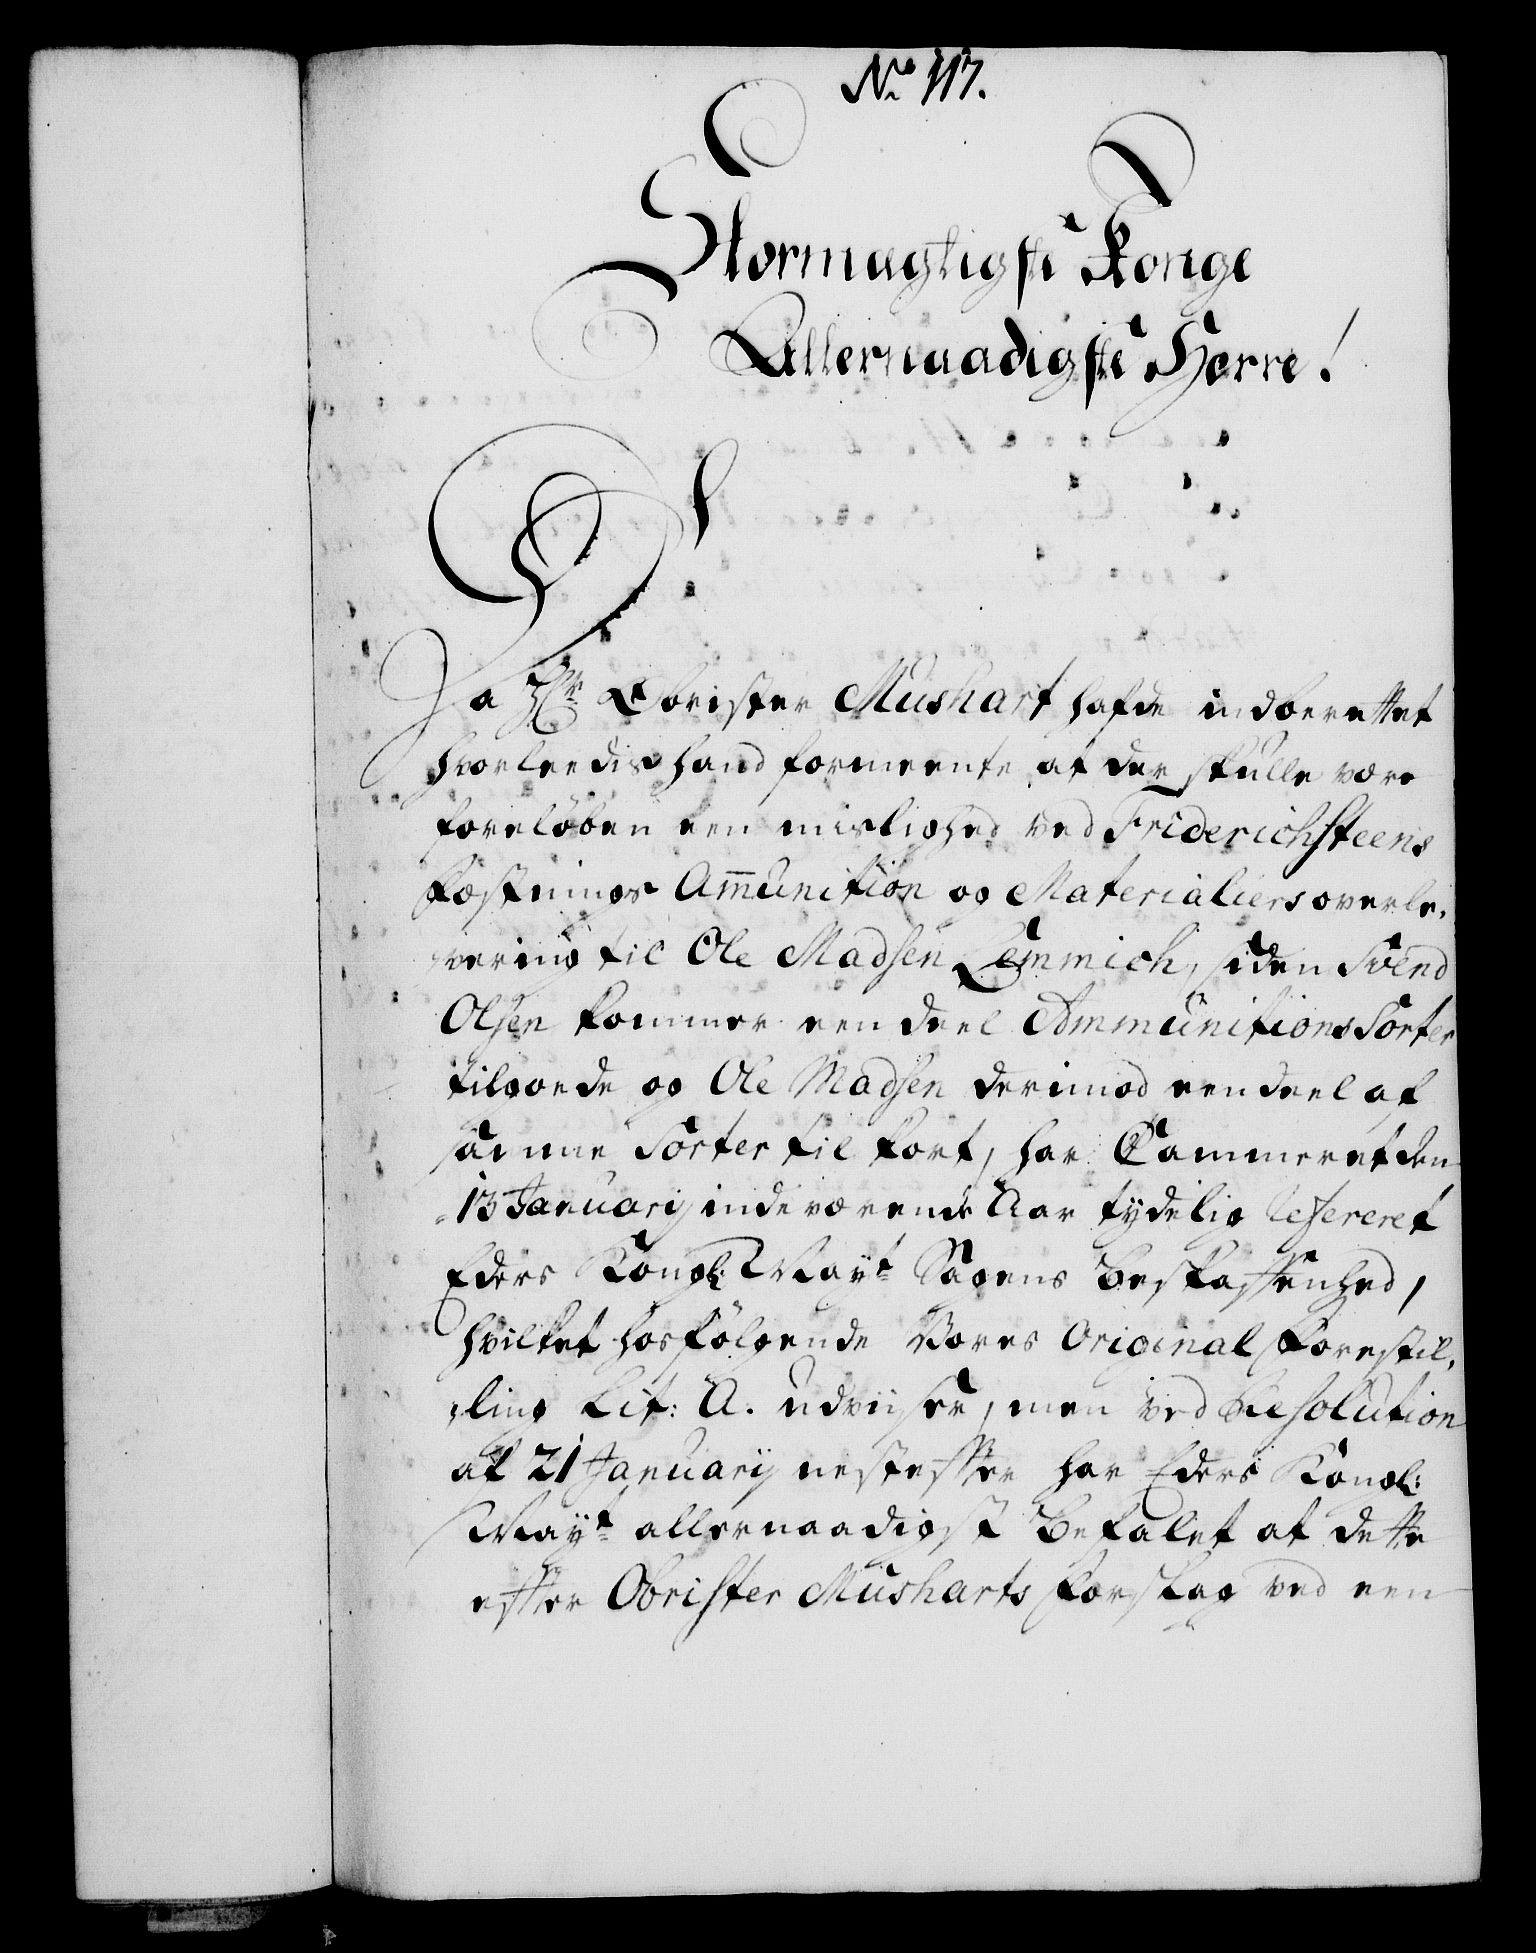 No 117.
Stormægtigste Konge
Allernaadigste Herre!
Da Hr Obrister Mushart hafde indberettet
hvorleedis hand formeente at der skulle være
foreløben een mislighed ved Friderichsteens
Fæstnings Am̄unition og Materialiers overle,
vering til Ole Madsen Lemmich, siden Svend
Olsen kommer een deel Ammunitions Sorter
tilgoede og Ole Madsen derimod een deel af
samme Sorter til kort, har Cammeret den
13 Januarij indeværende Aar tydelig refereret
Eders Kongl: Mayt Sagens Beskaffenhed,
hvilket hosfølgende Vores Original Forestil,
ling Lit: A. udviiser, men ved Resolution
af 21 Januarij nestefter har Eders Kongl:
Mayt allernaadigst Befalet at dette
efter Obrister Musharts Forslag ved een